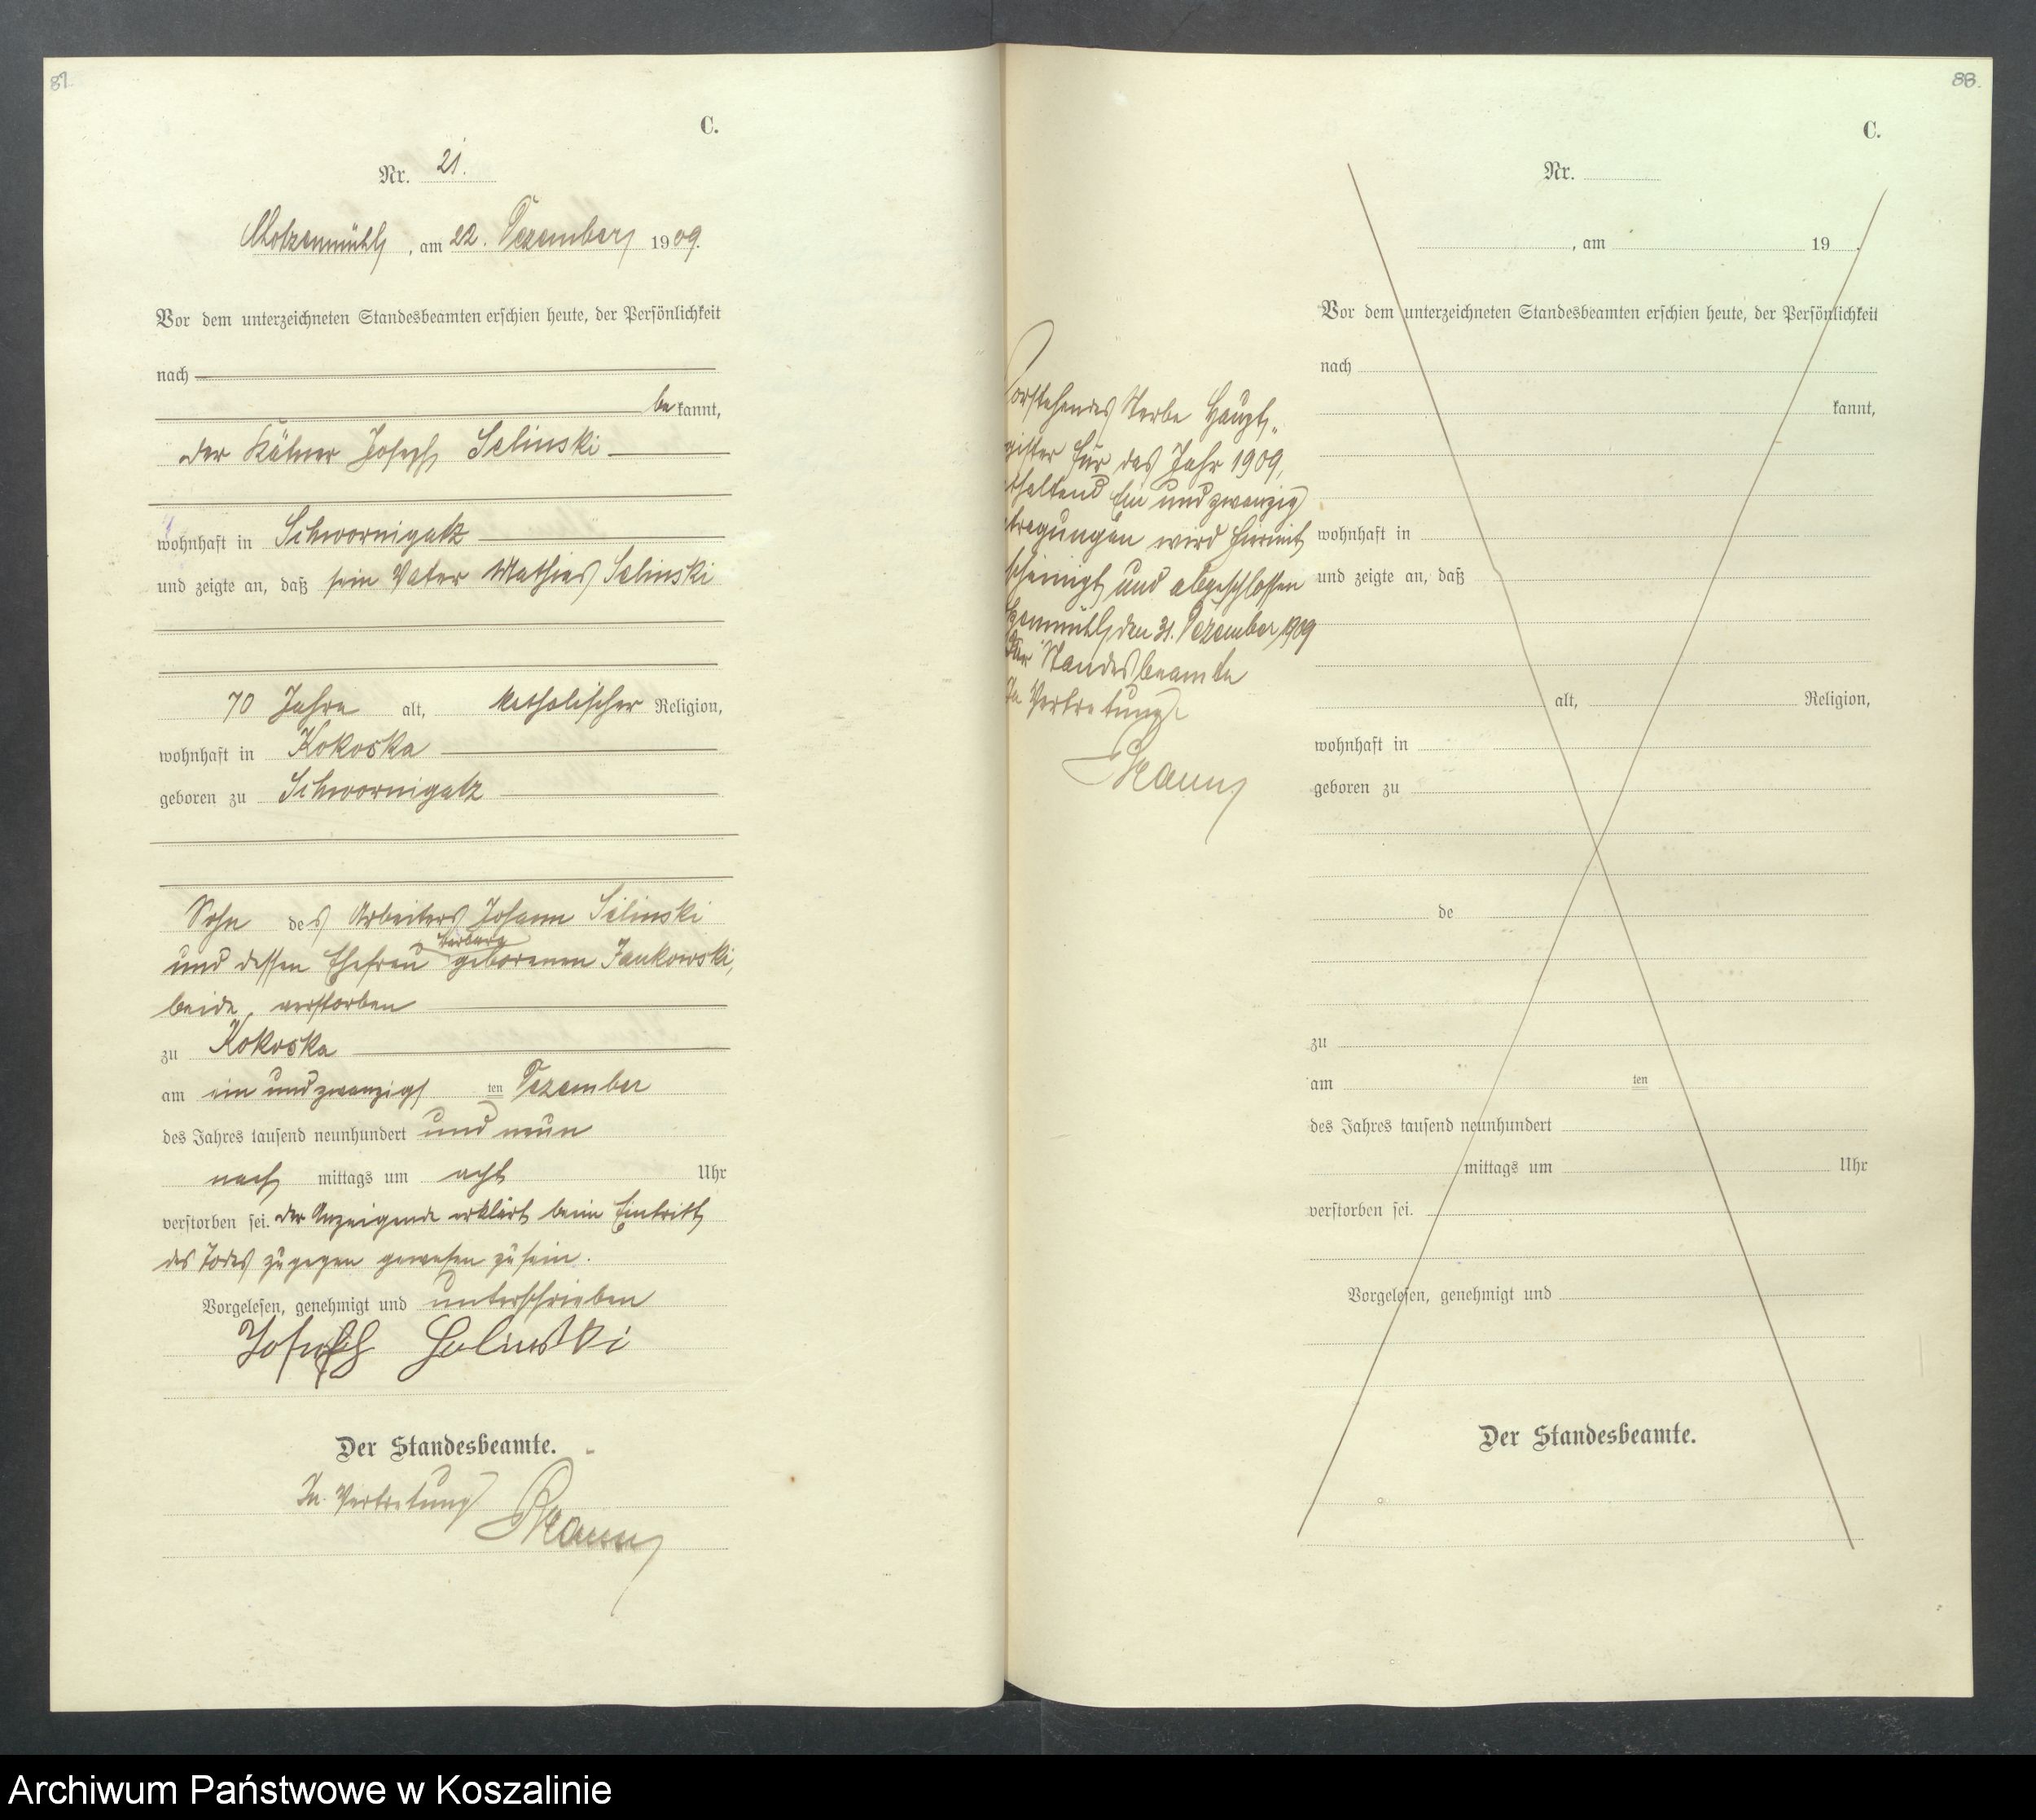 87.
C.
Nr. 21.
Klotzenmühl, am 22. Dezember 1909.
Vor dem unterzeichneten Standesbeamten erschien heute, der Persönlichkeit
nach
be kannt,
der Kätner Joseph Selinski
wohnhaft in Schwornigatz
und zeigte an, daß sein Vater Mathias Selinski
70 Jahre alt, katholischer Religion,
wohnhaft in Kokoska
geboren zu Schwornigatz
Sohn des Arbeiters Johann Selinski
Barbara
und dessen Ehefrau geborenen Jankowski,
beide verstorben
zu Kokoska
am ein und zwanzigsten Dezember
des Jahres tausend neunhundert und neun
nach mittags um acht Uhr
verstorben sei. Der Anzeigende erklärt beim Eintritt
des Todes zugegen gewesen zu sein.
Vorgelesen, genehmigt und unterschrieben
Joseph Selinski
Der Standesbeamte.
In Vertretung
88.
C.
Nr.
, am 19 .
Vorstehendes Sterbe Haupt-
gister für das Jahr 1909,
thaltend Ein und zwanzig
tragungen wird hiermit
scheinigt und abgeschlossen
tzenmühl den 31. Dezember 1909
Der Standesbeamte
In Vertretung
Vor dem unterzeichneten Standesbeamten erschien heute, der Persönlichkeit
nach
kannt,
wohnhaft in
und zeigte an, daß
alt, Religion,
wohnhaft in
geboren zu
de
zu
am ten
des Jahres tausend neunhundert
mittags um Uhr
verstorben sei.
Vorgelesen, genehmigt und
Der Standesbeamte.
Archiwum Państwowe w Koszalinie